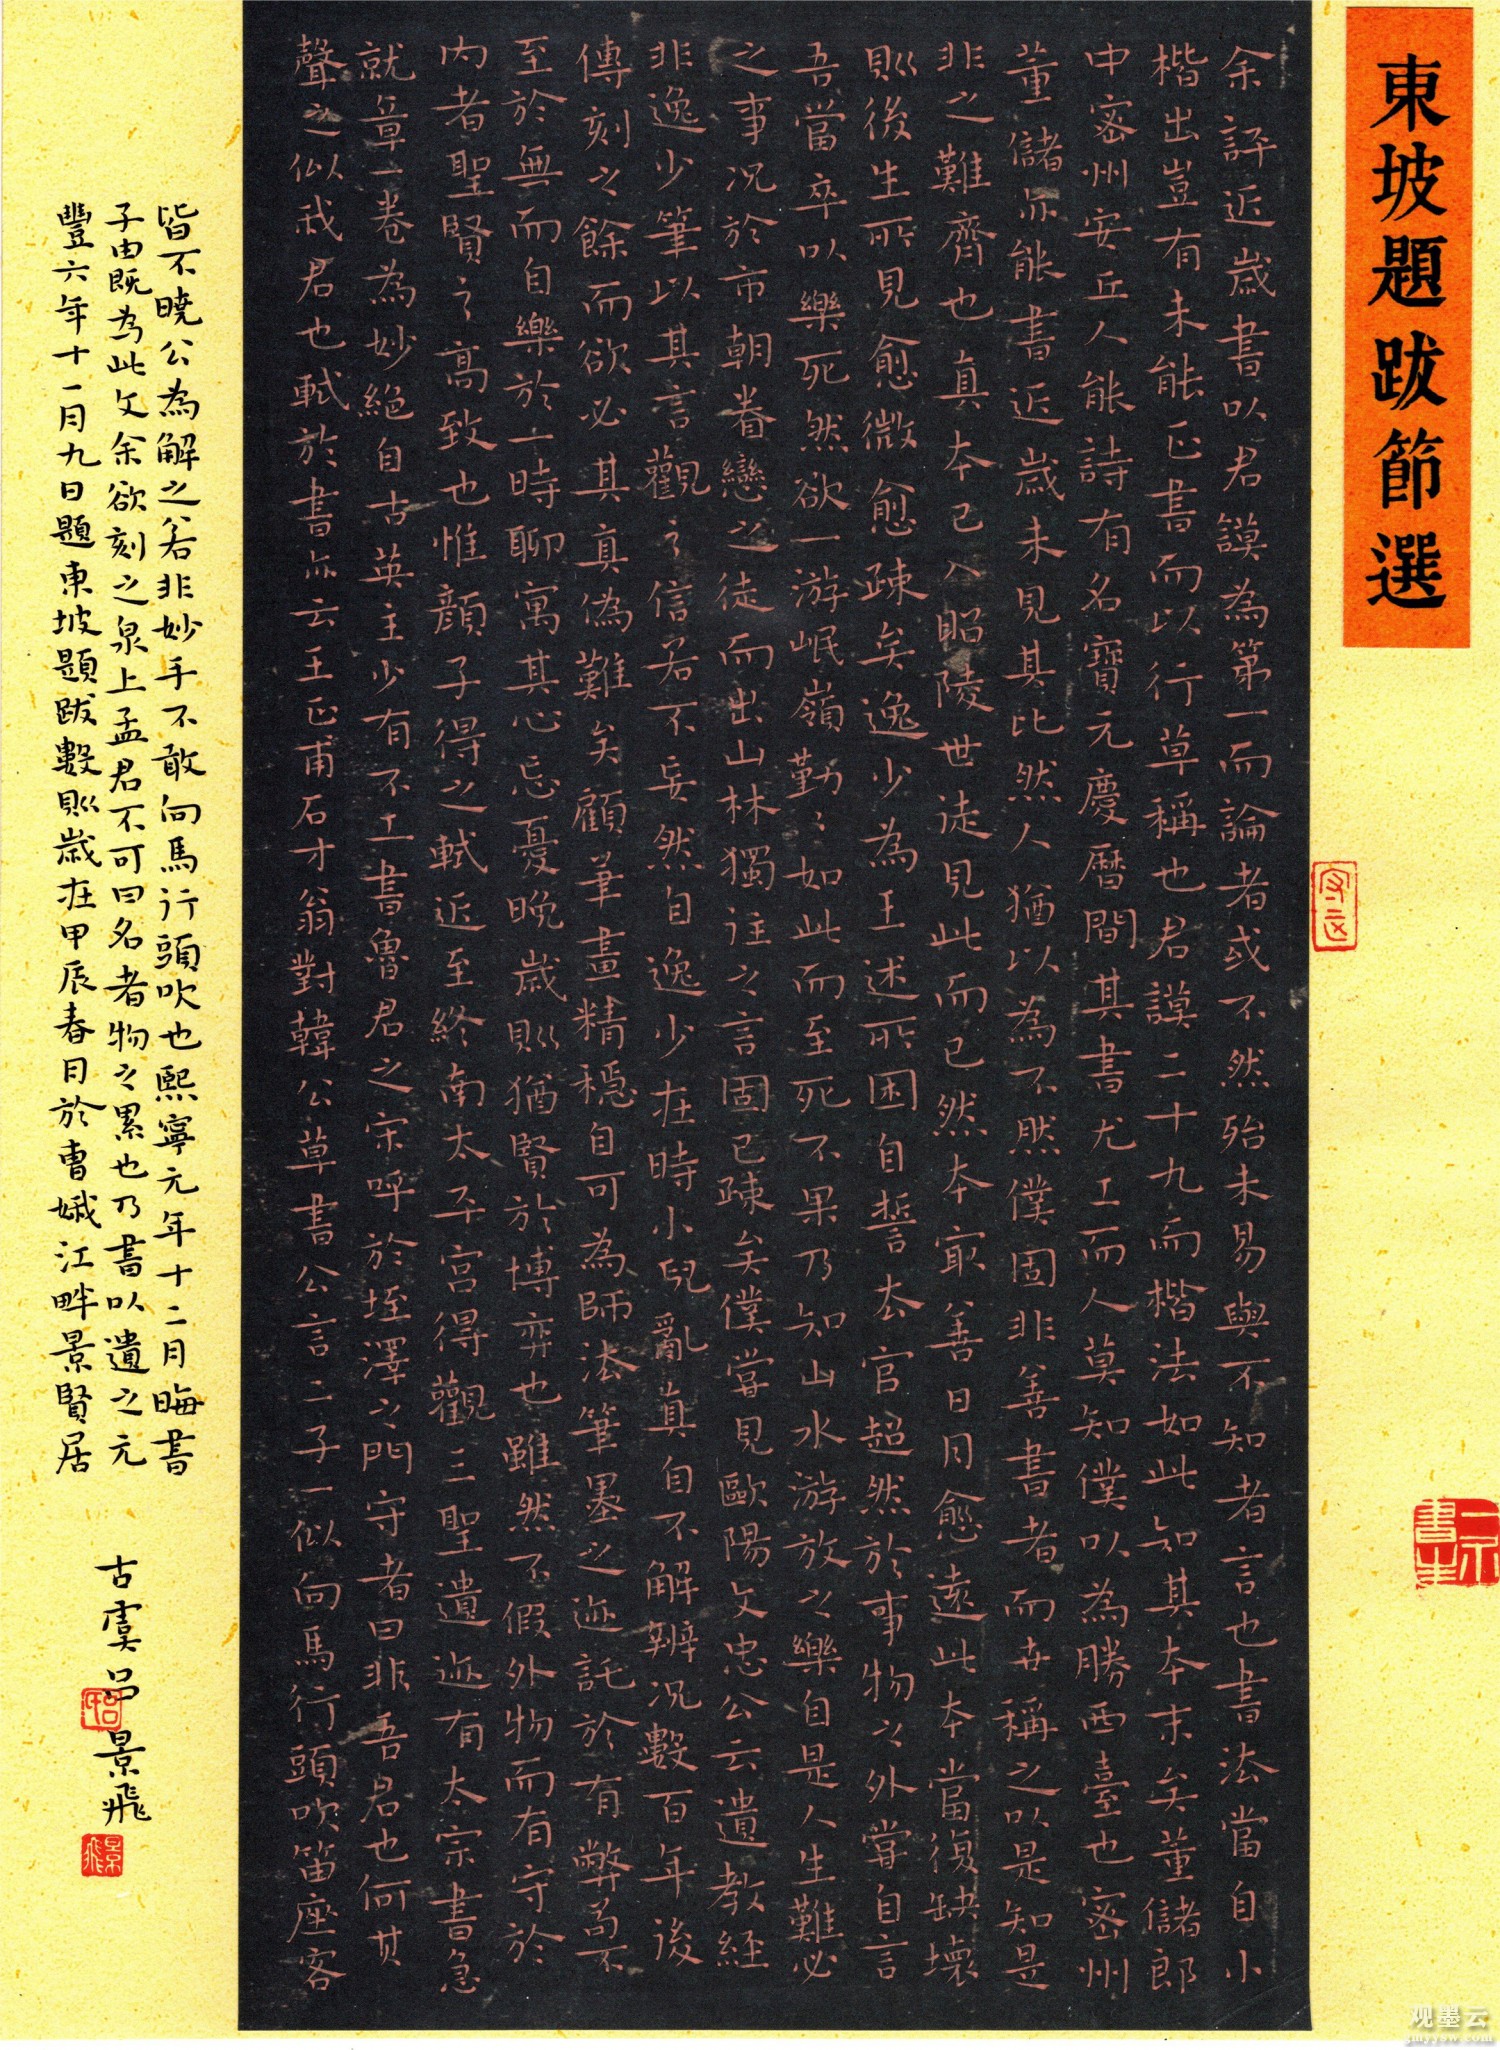 東坡題跋節選
余評近歲書以君謨為第一而論者或不然殆未易與不知者言也書法當自小
楷出豈有未能正書而以行草稱也君謨二十九而楷法如此知其本末矣董儲郎
中密州安丘人能詩有名寶元慶曆間其書尤工而人莫知僕以為勝西臺也密州
董儲亦能書近歲未見其比然人猶以為不然僕固非善書者而世稱之以是知是
非之難齊也真本已入昭陵世徒見此而已然本寂善日月愈遠此本當復缺壞
則後生所見愈微愈疎矣逸少為王述所困自誓去官超然於事物之外嘗自言
吾當卒以樂死然欲一游岷嶺勤〻如此而至死不果乃知山水游放之樂自是人生難必
之事况於市朝眷戀之徒而出山林獨往之言固已疎矣僕嘗見歐陽文忠公云遺教經
非逸少筆以其言觀之信若不妄然自逸少在時小兒亂真自不解辨况數百年後
傳刻之餘而欲必其真偽難矣顧筆畫精穩自可為師法筆墨之迹託於有弊為不
至於無而自樂於一時聊寓其心忘憂晚歲則猶賢於博弈也雖然不假外物而有守於
内者聖賢之高致也惟顏子得之軾近至終南太平宮得觀三聖遺迹有太宗書急
就章一卷為妙絕自古英主少有不工書魯君之宋呼於垤澤之門守者曰非吾君也何其
聲之似我君也軾於書亦云王正甫石才翁對韓公草書公言二子一似向馬行頭吹笛座客
皆不曉公為解之若非妙手不敢向馬行頭吹也熙寧元年十二月晦書
子由既為此文余欲刻之泉上孟君不可曰名者物之累也乃書以遺之元
豐六年十一月九日題東坡題跋數則歲在甲辰春月於曹娥江畔景賢居
古虞呂景飛
观墨云
gmyysw.com